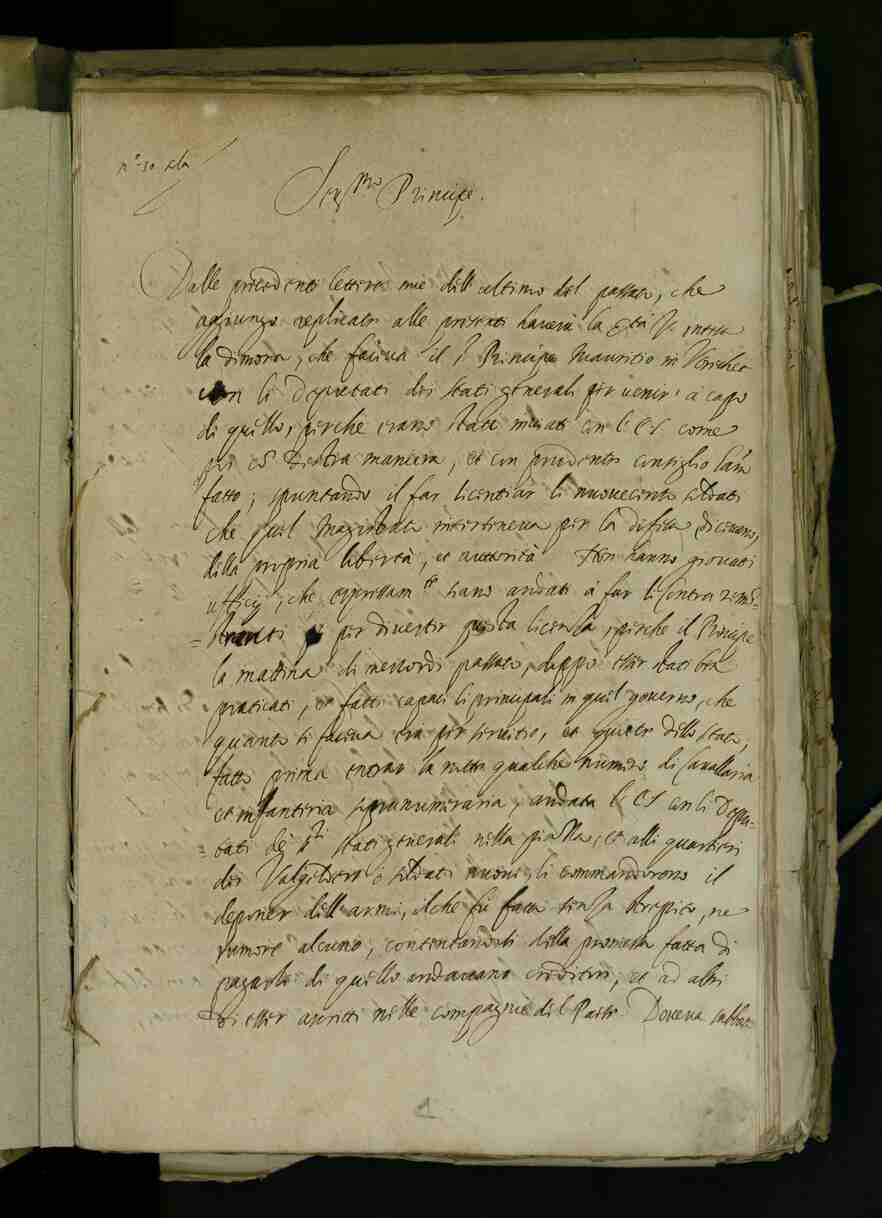 n.º 30 sla
Ser.mo Principe.
Dalle precedenti lettere mie dell'ultimo del passato, che
aggiungo replicate alle presenti haverà la Stà V. intesa
la dimora, che faceva il s.r Principe Mauritio in Utrichet
con li Deputati dei stati generali per venir à capo
di quello, perche erano stati inviati con l'Ecc.
per destra maniera, et con prudente consiglio
fatto; spuntando il far licentiar li novecento soldati
che quel Magistrato interteneva per la difesa, dicevano,
della propria libertà, et auttorità. Non hanno giovati
ufficij, che espressam.te siano andati à far li
per divertir questa licenza, perche il Principe
la mattina di mercordi passato, doppo esser stati ben
praticati, et fatti capaci li principali in quel governo, che
quanto si faceva era per servitio, et quiete dello stato;
fatto prima entrar la notte qualche numero di Cavallaria
et infantaria sopranumeraria, andata l'Ecc. con li Depu-
=tati de s.ri stati generali nella piazza, et alli quartieri
dei Valgelders ò soldati nuovi, li commandorono il
deponer dell'armi, ilche fù fatto senza strepito, ne
rumore alcuno, contentandosi della promessa fatta di
pagarli di quello andavano creditori, et ad altri
di esser ascritti nelle compagnie del Paese. Doveva